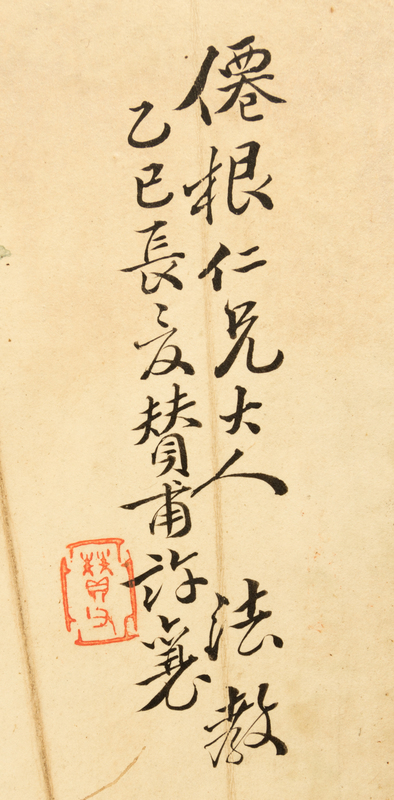 僊根仁兄大人 法教
乙巳長夏贊甫許襄